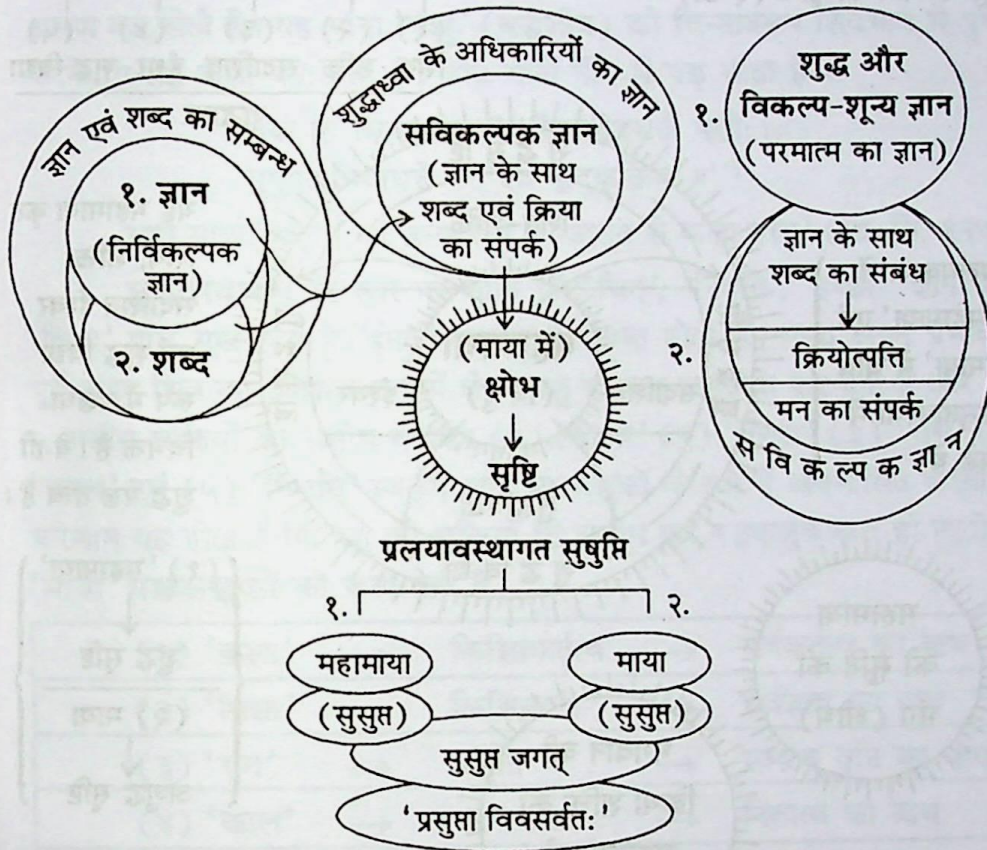 ज्ञान एवं शब्द का सम्बन्ध
१. ज्ञान
(निर्विकल्पक
ज्ञान)
२. शब्द
शुद्धाध्वा के अधिकारियों का ज्ञान
सविकल्पक ज्ञान
(ज्ञान के साथ
शब्द एवं क्रिया
का संपर्क)
(माया में)
क्षोभ
सृष्टि
१.
शुद्ध और
विकल्प-शून्य ज्ञान
(परमात्म का ज्ञान)
ज्ञान के साथ
शब्द का संबंध
२.
क्रियोत्पत्ति
मन का संपर्क
स वि क ल्प क ज्ञा न
प्रलयावस्थागत सुषुप्ति
१.
२.
महामाया
माया
(सुसुप्त)
(सुसुप्त)
सुसुप्त जगत्
'प्रसुप्ता विवसर्वत:'